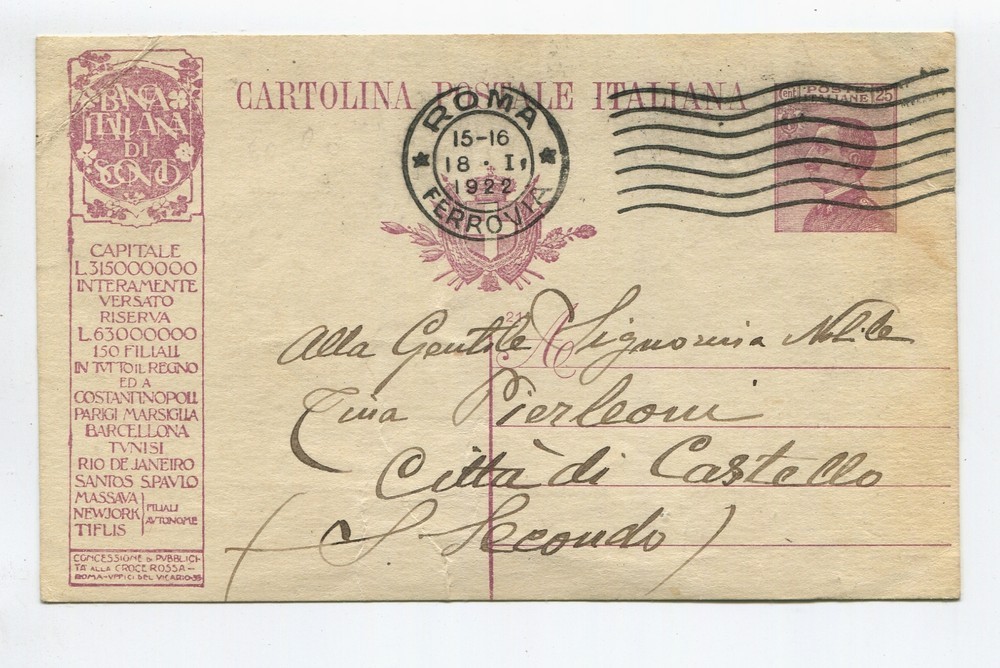 BANCA
ITALIANA
DI
SCONTO
CAPITALE
L.315000000
INTERAMENTE
VERSATO
RISERVA
L.63000000
150 FILIALI
IN TVTTO IL REGNO
ED A
COSTANTINOPOLI
PARIGI MARSIGLIA
BARCELLONA
TVNISI
RIO DE JANEIRO
SANTOS S.PAVLO
MASSAVA
NEWJORK
TIFLIS
FILIALI
AVTONOME
CONCESSIONE DI PVBBLICI-
TA ALLA CROCE ROSSA-
ROMA-VFFICI DEL VICARIO-35
CARTOLINA POSTALE ITALIANA
ROMA
15-16
18 · I.
1922
FERROVIA
Cent POSTE 25
ITALIANE
21
Alla Gentile Signorina Nobile
Tina Pierleoni
Città di Castello
(S. Secondo)